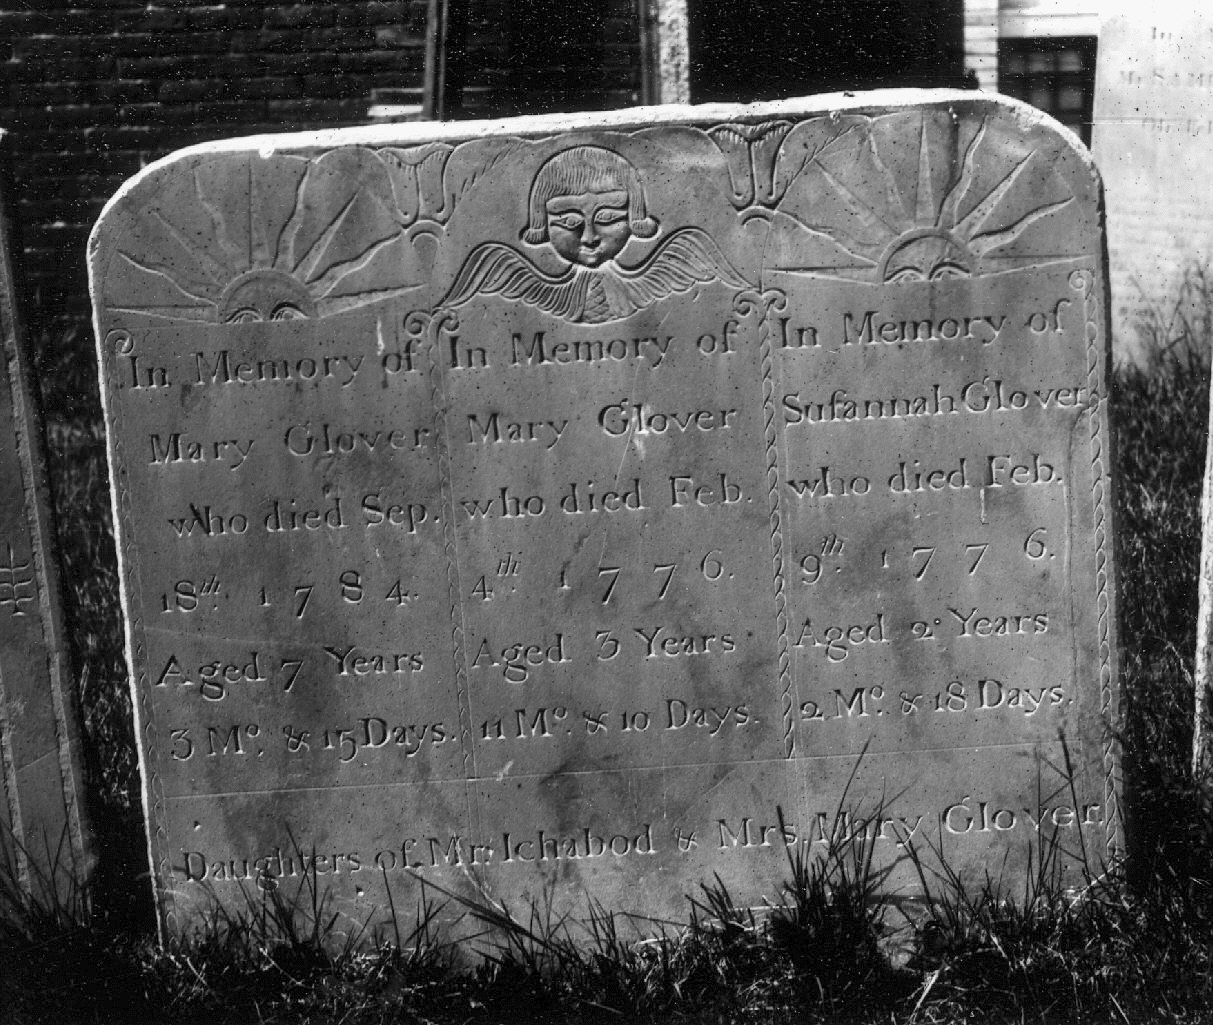 In Memory of
Mary Glover
who died Sep.
18th. 1784.
Aged 7 Years
3 Mo. & 15 Days.
In Memory of
Mary Glover
who died Feb.
4th. 1776.
Aged 3 Years
11 Mo. & 10 Days.
In Memory of
Suſannah Glover
who died Feb.
9th. 1776.
Aged 2 Years
2 Mo. & 18 Days.
Daughters of Mr. Ichabod & Mrs. Mary Glover.